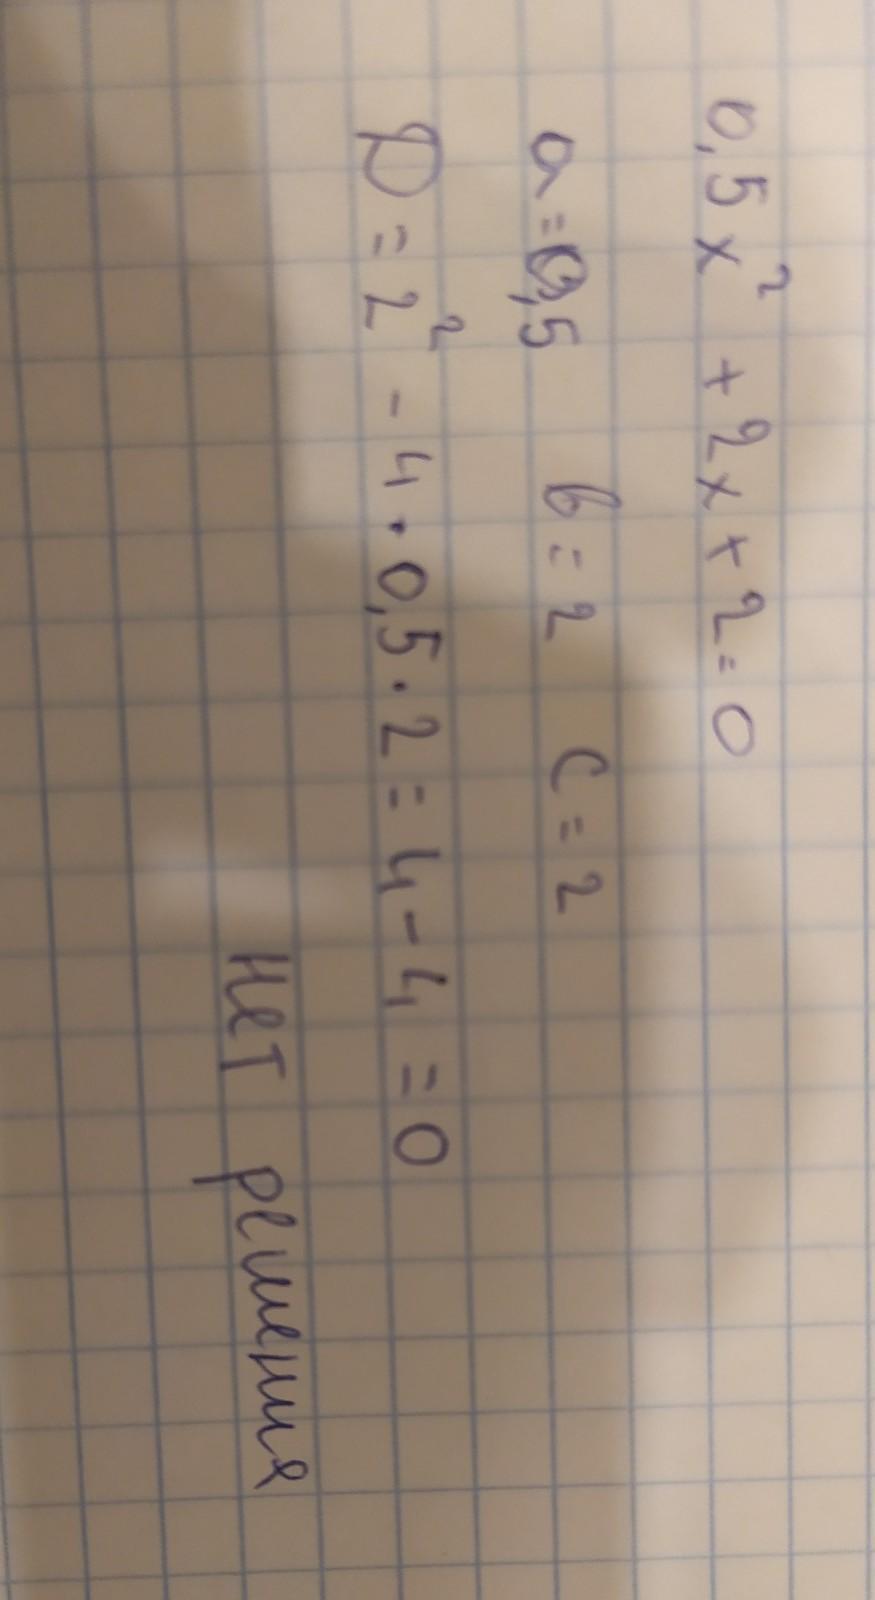 0,5x² + 2x + 2 = 0
a = 0,5 b = 2 c = 2
D = 2² - 4 · 0,5 · 2 = 4 - 4 = 0
нет решения